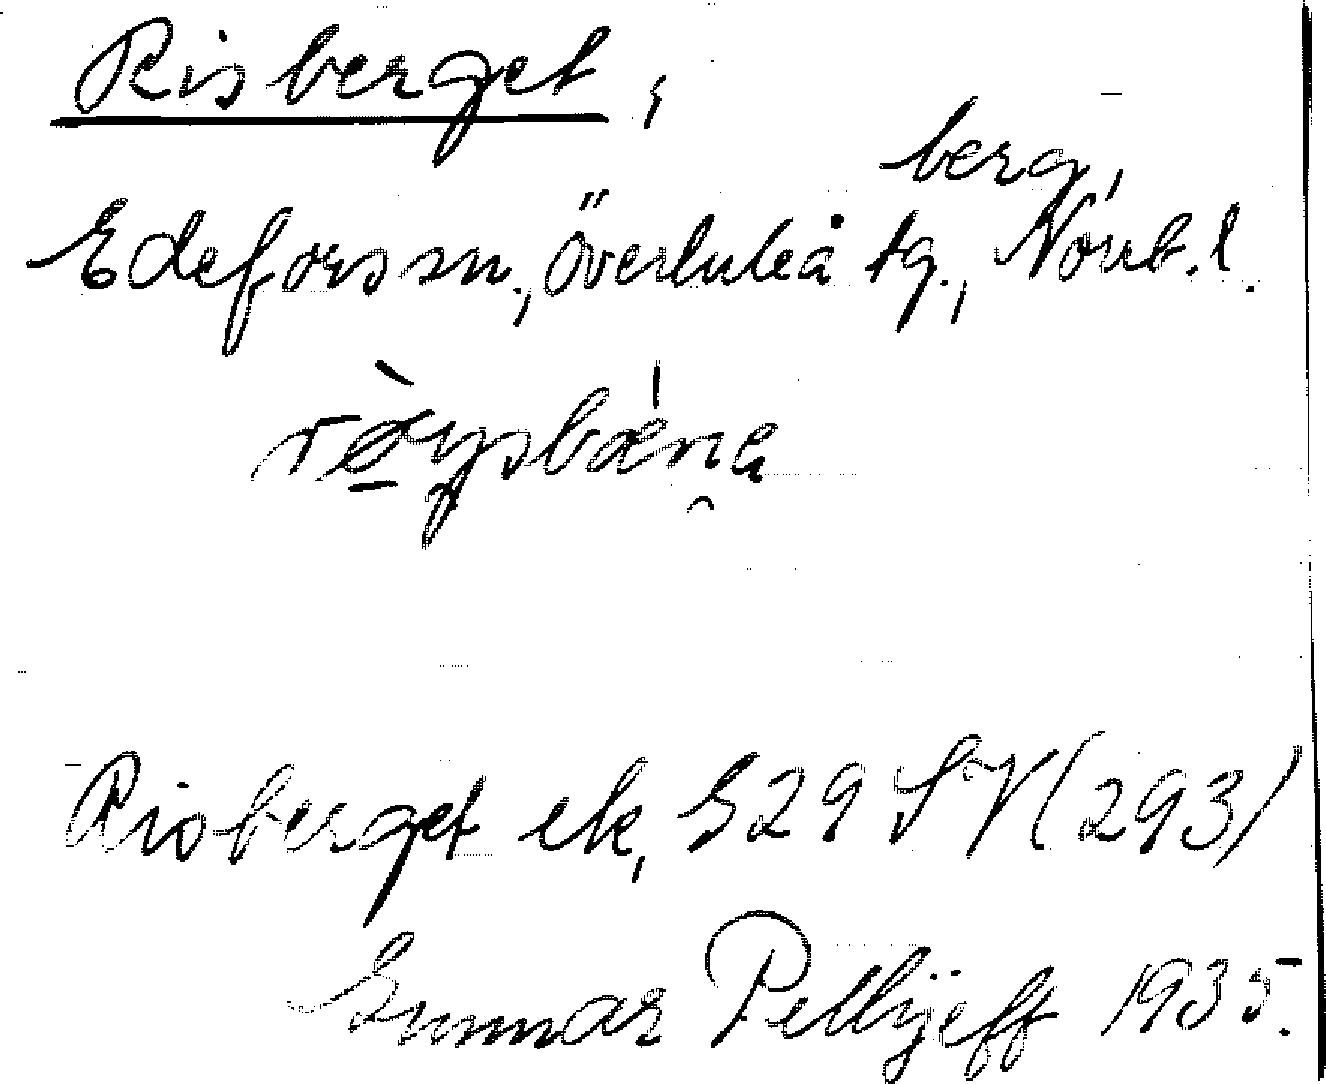 Risberget,
berg,
Edefors sn., Överluleå tg., Norrb. l.
Risberget ek, G29 SV (293)
Gunnar Pellijeff 1935.